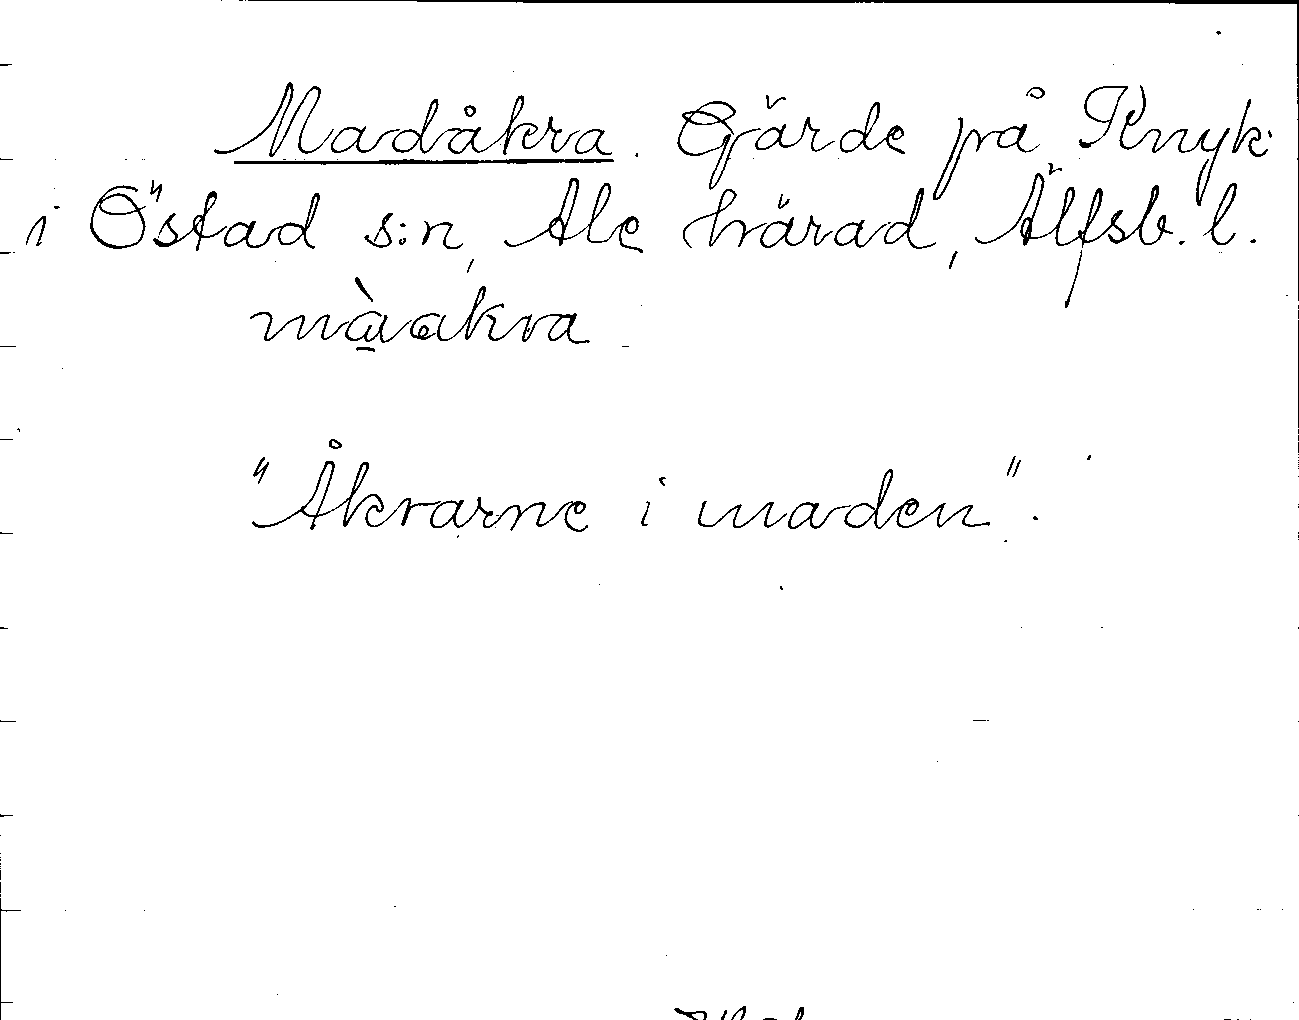 Madåkra. Gärde på Knyk
i Östad s:n, Ale härad, Älfsb. l.
màakra
"Åkrarne i maden".